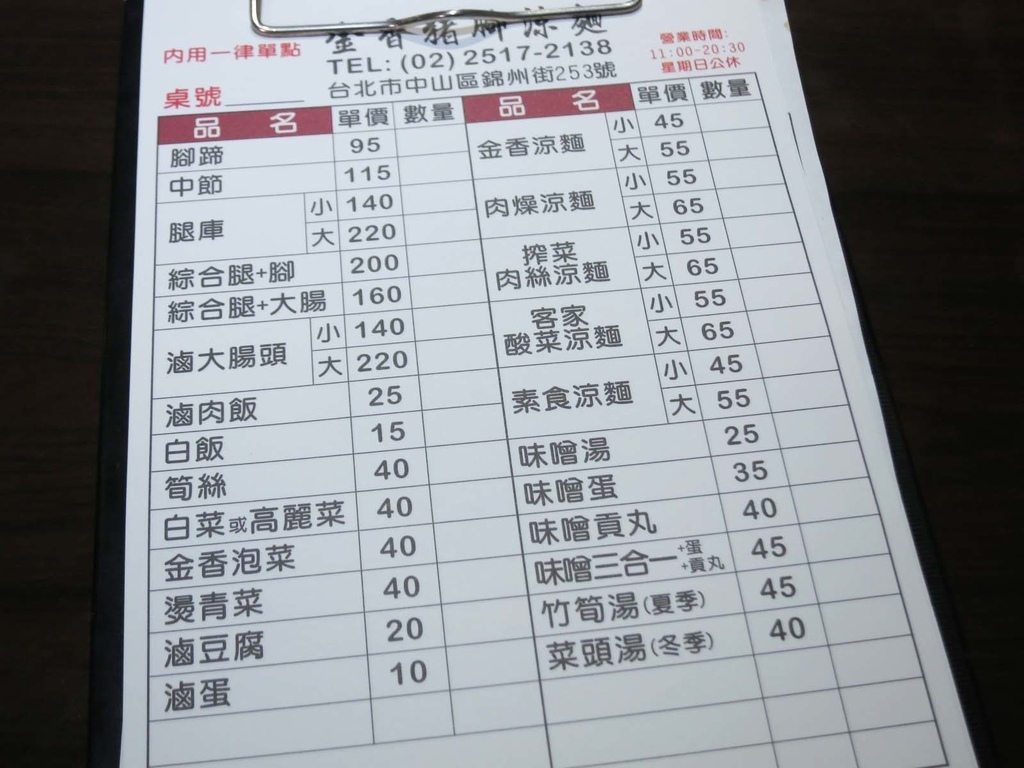 金香豬腳涼麵
內用一律單點
TEL: (02) 2517-2138
台北市中山區錦州街253號
營業時間:
11:00-20:30
星期日公休
桌號
品 名 單價 數量
腳蹄 95
中節 115
腿庫 小 140
大 220
綜合腿+腳 200
綜合腿+大腸 160
滷大腸頭 小 140
大 220
滷肉飯 25
白飯 15
筍絲 40
白菜或高麗菜 40
金香泡菜 40
燙青菜 40
滷豆腐 20
滷蛋 10
品 名 單價 數量
金香涼麵 小 45
大 55
肉燥涼麵 小 55
大 65
搾菜
肉絲涼麵 小 55
大 65
客家
酸菜涼麵 小 55
大 65
素食涼麵 小 45
大 55
味噌湯 25
味噌蛋 35
味噌貢丸 40
味噌三合一 +蛋 +貢丸 45
竹筍湯(夏季) 45
菜頭湯(冬季) 40